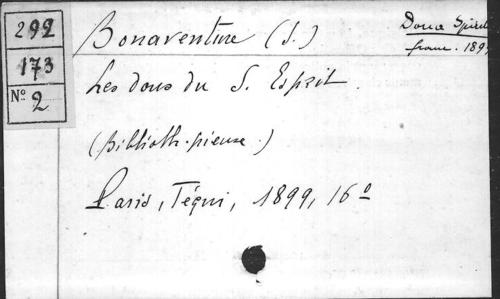 292
173
Nº 2
Bonaventure (S.)
Dona Spirit
franc. 189
Les dons du S. Esprit.
(Biblioth. pieuse.)
Paris, Téqui, 1899, 16º